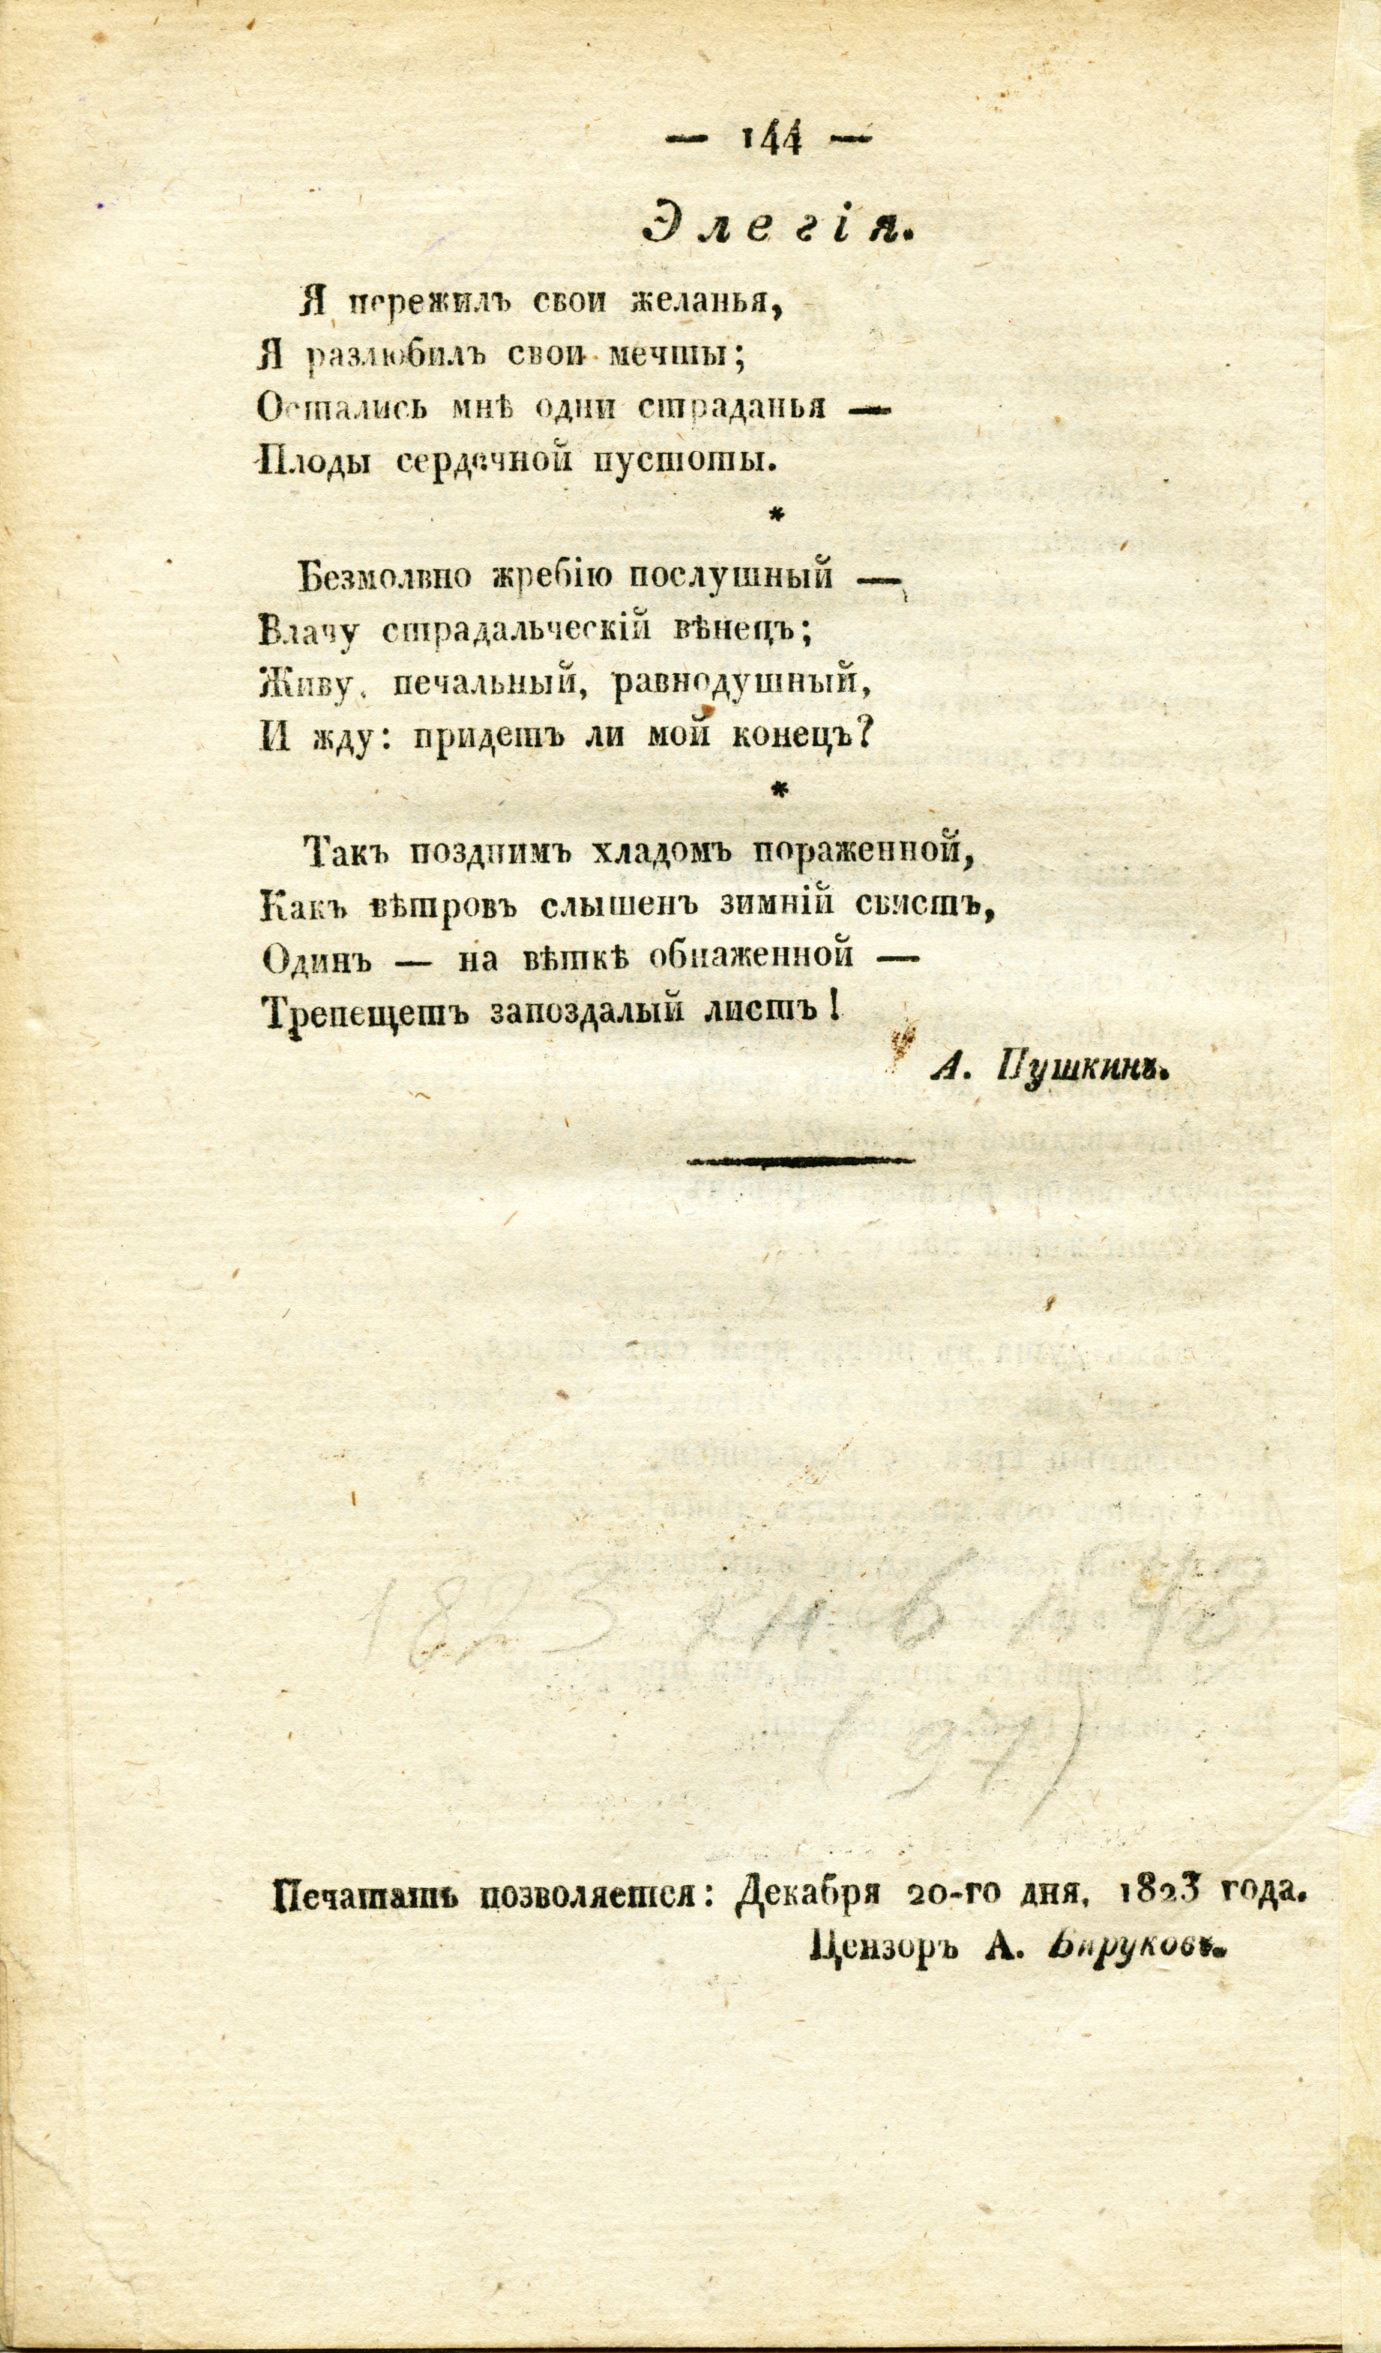 — 144 —
Элегія.
Я пережилъ свои желанья,
Я разлюбилъ свои мечты;
Остались мнѣ одни страданья —
Плоды сердечной пустоты.
*
Безмолвно жребію послушный —
Влачу страдальческій вѣнецъ;
Живу, печальный, равнодушный,
И жду: придетъ ли мой конецъ?
*
Такъ позднимъ хладомъ пораженной,
Какъ вѣтровъ слышенъ зимній свистъ,
Одинъ — на вѣткѣ обнаженной —
Трепещетъ запоздалый листъ!
А. Пушкинъ.
1823
(97)
Печатать позволяется: Декабря 20-го дня, 1823 года.
Цензоръ А. Бируковъ.